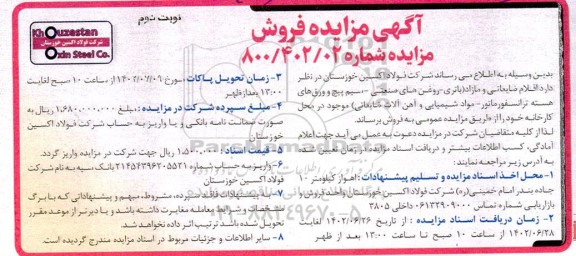 نوبت دوم
Khouzestan
شرکت فولاد اکسین خوزستان
Oxin Steel Co.
آگهی مزایده فروش
مزایده شماره ۸۰۰/۴۰۲/۰۲
بدین وسیله به اطلاع می رساند شرکت فولاد اکسین خوزستان در نظر
دارد اقلام ضایعاتی و مازاد (باتری -روغن های صنعتی - سیم پیچ و ورق های
هسته ترانسفورماتور - مواد شیمیایی و آهن آلات ضایعاتی) موجود در محل
کارخانه خود را از طریق مزایده عمومی به فروش برساند.
لذا از کلیه متقاضیان شرکت در مزایده دعوت به عمل می آید جهت اعلام
آمادگی، کسب اطلاعات بیشتر و دریافت اسناد مزایده در زمان تعیین شده
به آدرس زیر مراجعه نمایند:
۱- محل اخذ اسناد مزایده و تسلیم پیشنهادات: اهواز کیلومتر ۱۰
جاده بندر امام خمینی(ره) شرکت فولاد اکسین خوزستان واحد فروش و
بازاریابی شماره تماس ۰۶۱۳۲۹۰۹۰۰۰ داخلی ۳۸۰۵
۲- زمان دریافت اسناد مزایده : از تاریخ ۱۴۰۲/۰۶/۲۶ لغایت
۱۴۰۲/۰۶/۲۸ از ساعت ۱۰ صبح تا ساعت ۱۳:۰۰ بعد از ظهر
۳- زمان تحویل پاکات: مورخ ۱۴۰۲/۰۷/۰۶ از ساعت ۱۰ صبح لغایت
۱۳:۰۰ بعداز ظهر
۴- مبلغ سپرده شرکت در مزایده : مبلغ ۱,۶۸۰,۰۰۰,۰۰۰ ریال به
صورت ضمانت نامه بانکی و یا واریز به حساب شرکت فولاد اکسین
خوزستان
۵- قیمت اسناد: ۱,۵۰۰,۰۰۰ ریال جهت شرکت در مزایده واریز گردد.
۶- واریز به حساب شماره ۲۱۴۵۴۳۹۶۲۰۵۵۲۱ بانک سپه به نام شرکت
فولاد اکسین خوزستان
۷- به پیشنهادات فاقد سپرده، مشروط، مبهم و پیشنهاداتی که با برگ
مشخصات و شرایط معامله مغایرت داشته باشد و یا دیرتر از موعد مقرر
تحویل شده باشد ترتیب اثر داده نخواهد شد.
۸- سایر اطلاعات و جزئیات مربوط در اسناد مزایده مندرج گردیده است.
ParsNamadData